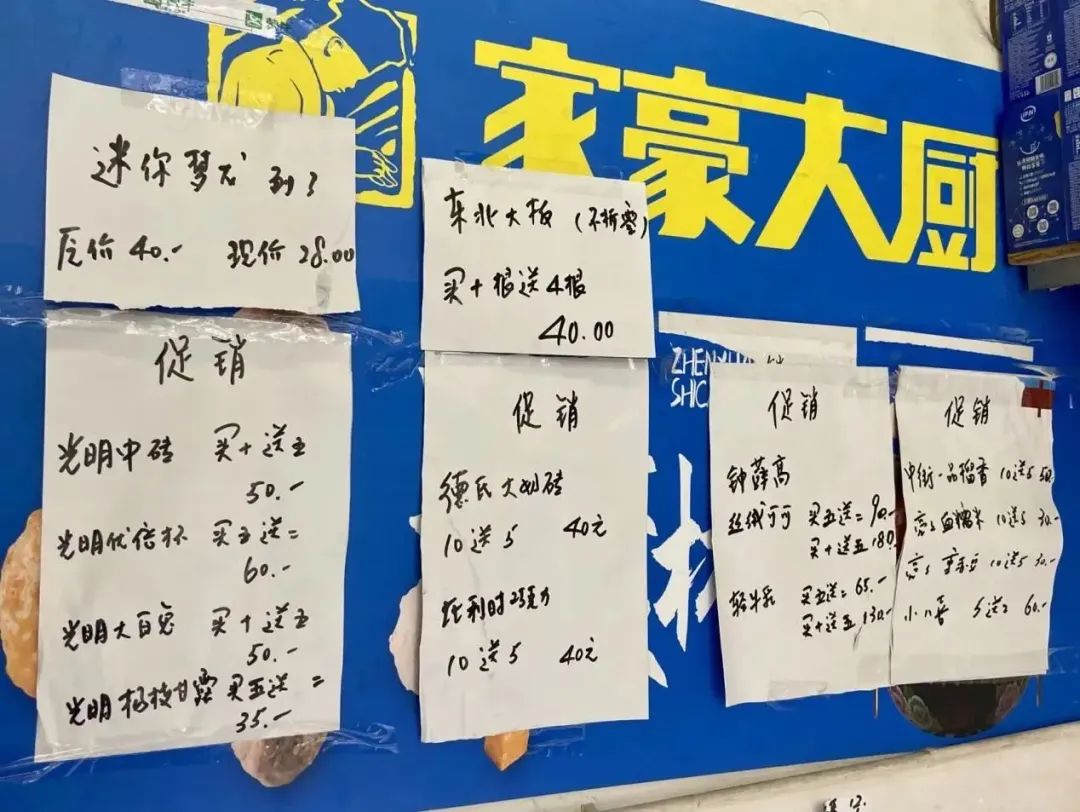 家豪大厨
迷你梦龙 到了
原价 40.- 现价 28.00
东北大板 (不拆零)
买十根送4根
40.00
促销
光明中砖 买十送五
50.-
光明优倍杯 买五送二
60.-
光明大白兔 买十送五
50.-
光明杨枝甘露 买五送二
35.-
促销
德氏大奶砖
10送5 40元
比利时巧克力
10送5 40元
ZHENYUA
SHIC
促销
钟薛高
丝绒可可 买五送二 90.-
买十送五 180.
轻牛乳 买五送二 65.-
买十送五 130.-
促销
中街一品榴香 10送5 50.-
血糯米 10送5 30.-
10送5 30.-
小小喜 5送2 60.-